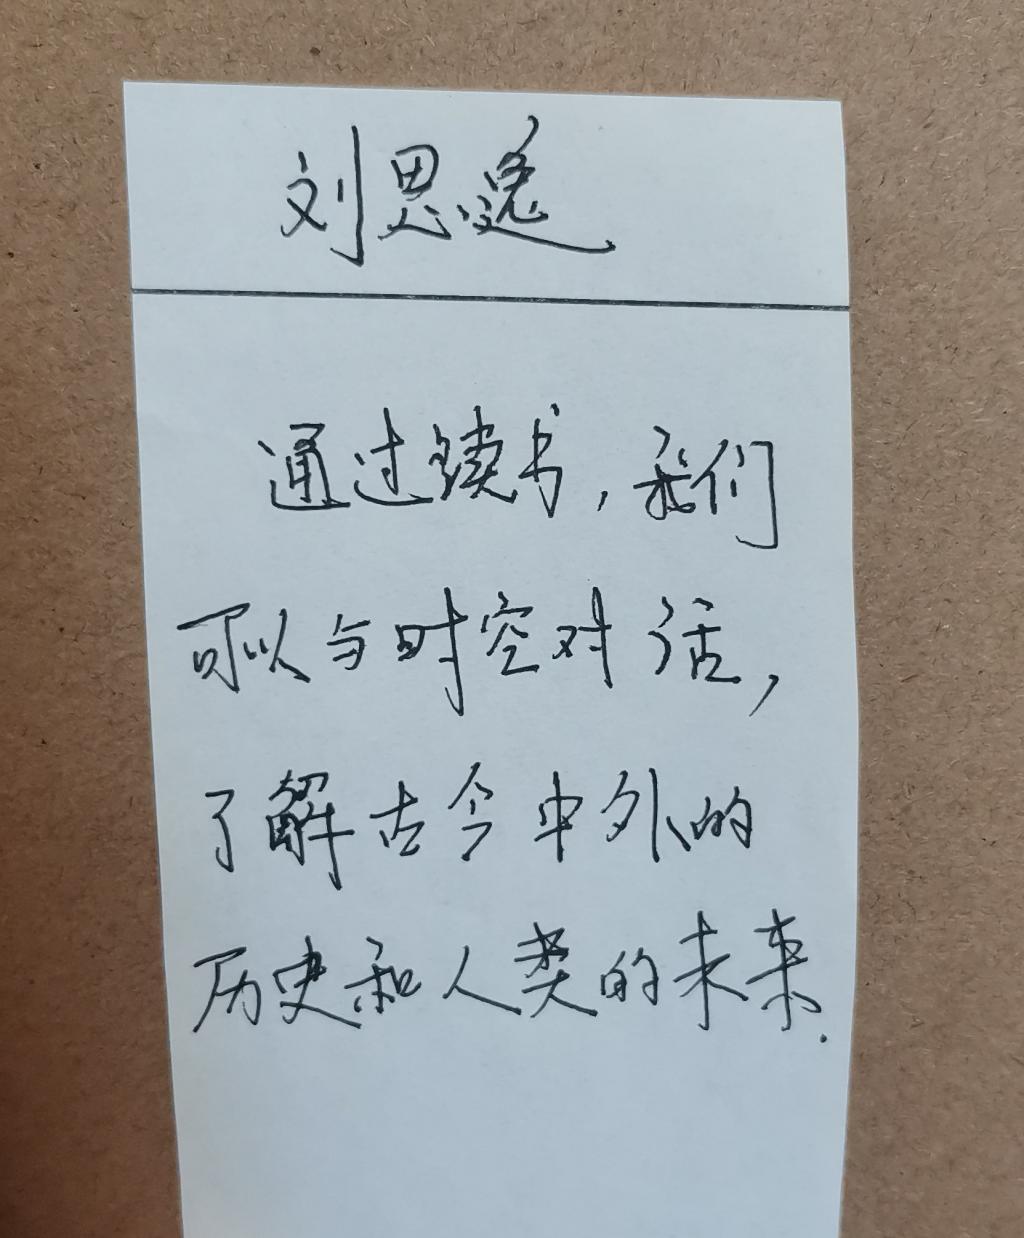 刘思逸
通过读书,我们
可以与时空对话,
了解古今中外的
历史和人类的未来.